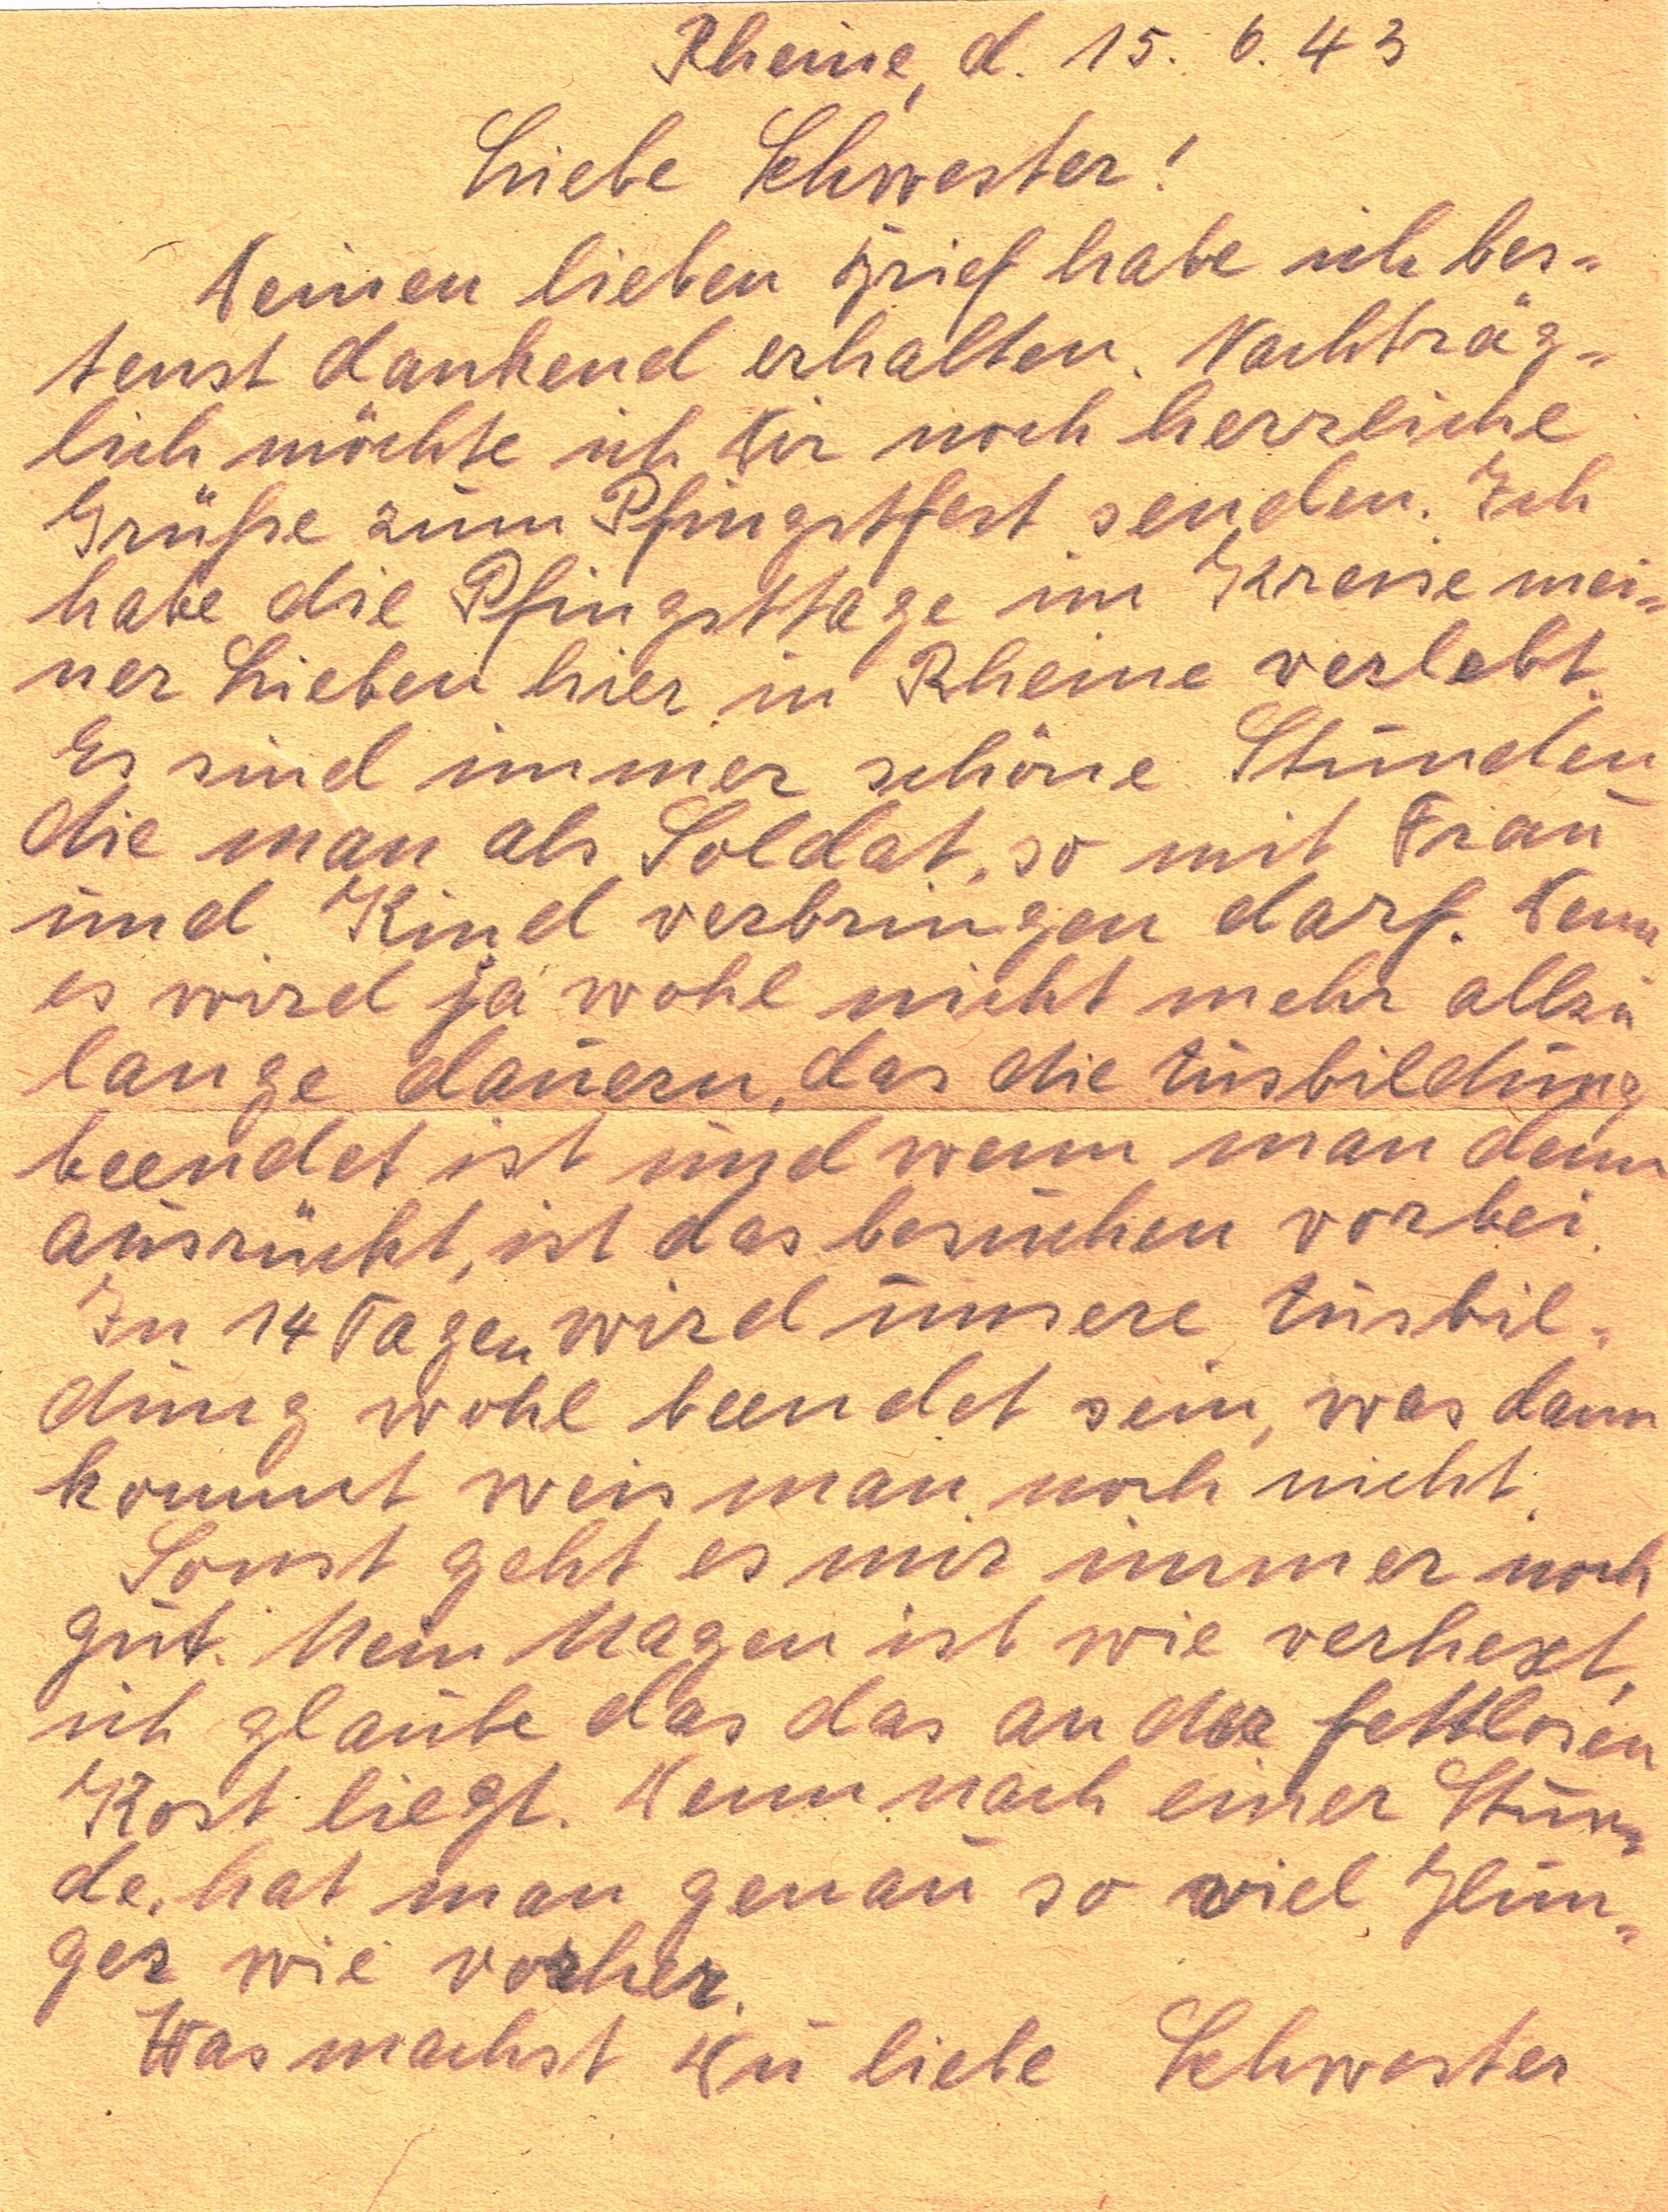 Rheine, d. 15. 6. 43
Liebe Schwester!
Deinen lieben Brief habe ich bes-
tenst dankend erhalten. Nachträg-
lich möchte ich Dir noch herzliche
Grüße zum Pfingstfest senden. Ich
habe die Pfingsttage im Kreise mei-
ner Lieben hier in Rheine verlebt.
Es sind immer schöne Stunden
die man als Soldat, so mit Frau
und Kind verbringen darf. Denn
es wird ja wohl nicht mehr allzu
lange dauern, das die Ausbildung
beendet ist und wenn man denn
ausrückt, ist das besuchen vorbei.
In 14 Tagen wird unsere Ausbil-
dung wohl beendet sein, was dann
kommt weis man noch nicht.
Sonst geht es mir immer noch
gut. Mein Magen ist wie verhext,
ich glaube das das an der fettlosen
Kost liegt. Denn nach einer Stun-
de, hat man genau so viel Hun-
ger wie vorher.
Was machst Du liebe Schwester